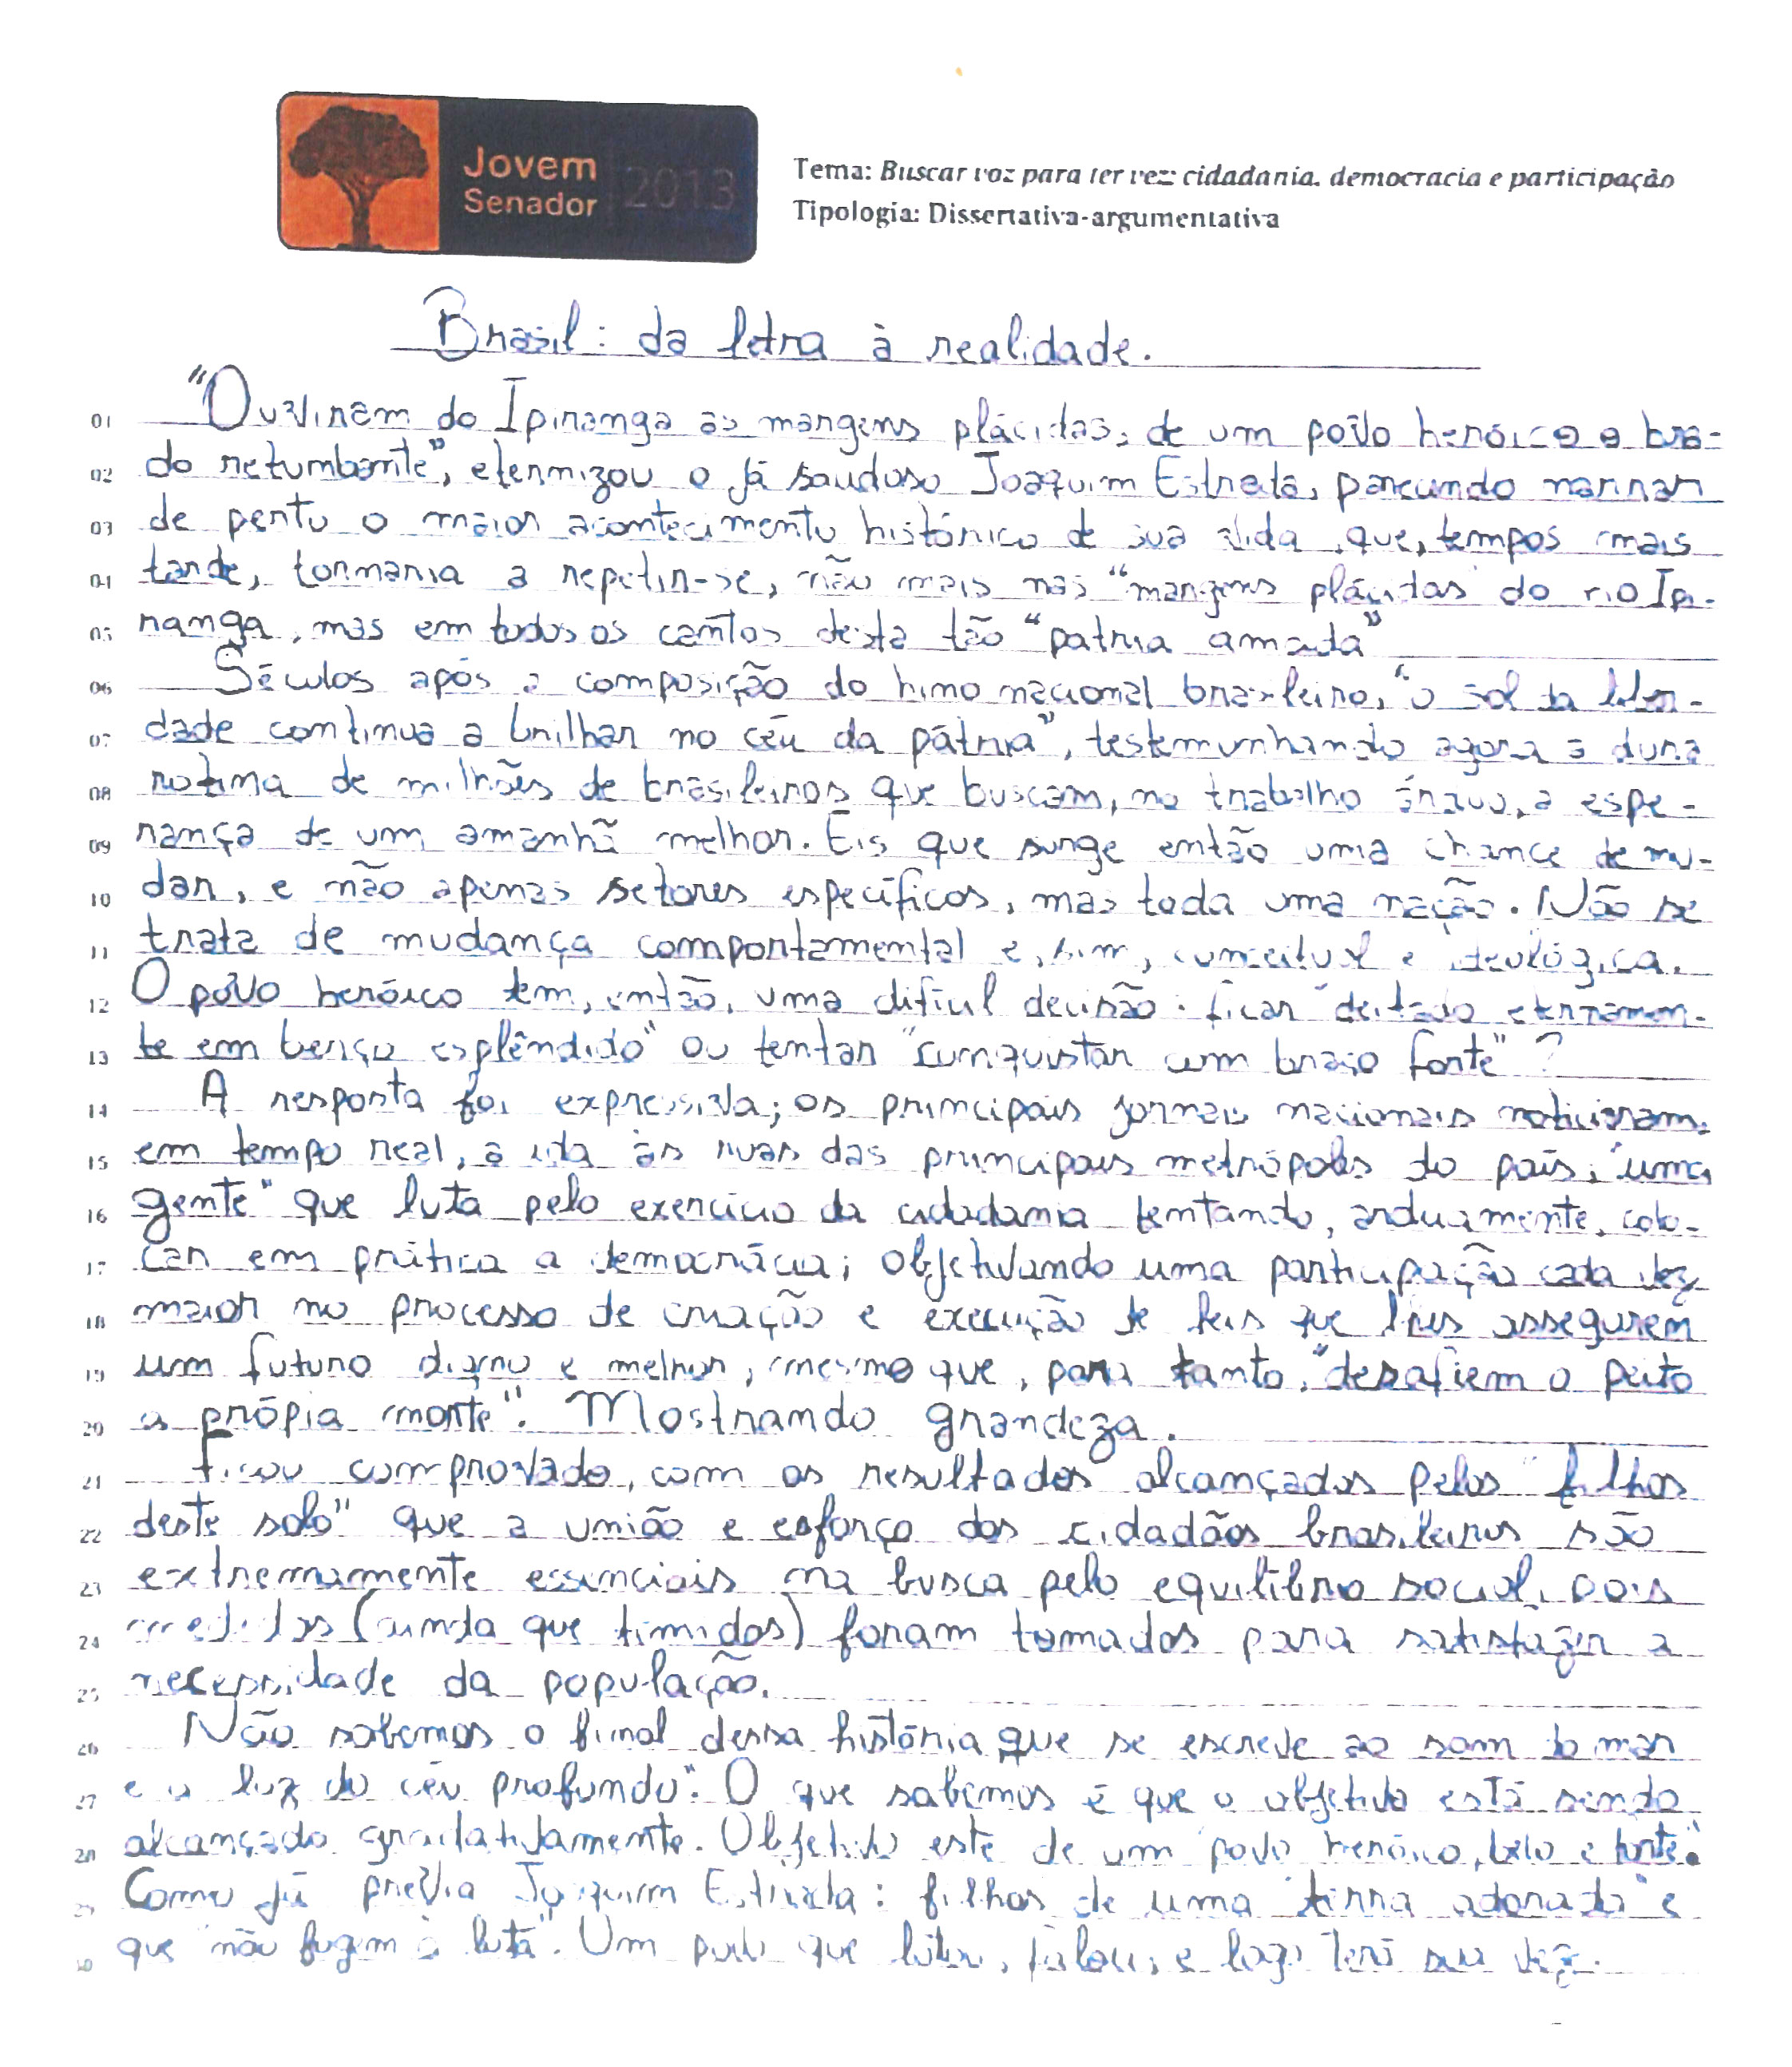 Jovem
Senador
2013
Tema: Buscar voz para ter vez: cidadania, democracia e participação
Tipologia: Dissertativa-argumentativa
Brasil: da letra à realidade.
01 "Ouviram do Ipiranga as margens plácidas, de um povo heróico o bra-
02 do retumbante", eternizou o já saudoso Joaquim Estrada, parecendo narrar
03 de perto o maior acontecimento histórico de sua vida, que, tempos mais
04 tarde, tornaria a repetir-se, não mais nas "margens plácidas" do rio Ipi-
05 ranga, mas em todos os cantos desta tão "patria amada"
06 Séculos após a composição do hino nacional brasileiro, "o sol da liber-
07 dade continua a brilhar no céu da pátria", testemunhando agora a dura
08 rotina de milhões de brasileiros que buscam, no trabalho árduo, a espe-
09 rança de um amanhã melhor. Eis que surge então uma chance de mu-
10 dar, e não apenas setores específicos, mas toda uma nação. Não se
11 trata de mudança comportamental e, sim, conceitual e ideológica.
12 O povo heróico tem, então, uma difícil decisão: ficar "deitado eternamen-
13 te em berço esplêndido" ou tentar "conquistar com braço forte"?
14 A resposta foi expressiva; os principais jornais nacionais noticiaram,
15 em tempo real, a ida às ruas das principais metrópoles do país, "uma
16 gente" que luta pelo exercício da cidadania tentando, arduamente, colo-
17 car em prática a democrácia; objetivando uma participação cada vez
18 maior no processo de criação e execução de leis que lhes assegurem
19 um futuro digno e melhor, mesmo que, para tanto, "desafiem o peito
20 a própia morte". Mostrando grandeza.
21 Ficou comprovado, com os resultados alcançados pelos "filhos
22 deste solo" que a união e esforço dos cidadãos brasileiros são
23 extremamente essenciais na busca pelo equilíbrio social, pois
24 medidas (ainda que timidas) foram tomadas para satisfazer a
25 necessidade da população.
26 Não sabemos o final dessa história que se escreve ao som do mar
27 e a luz do céu profundo". O que sabemos é que o objetivo está sendo
28 alcançado gradativamente. Objetivo este de um "povo heróico, belo e forte".
29 Como já previa Joaquim Estrada: filhos de uma "terra adorada" e
30 que "não fogem à luta". Um povo que lutou, falou, e logo terá sua vez.